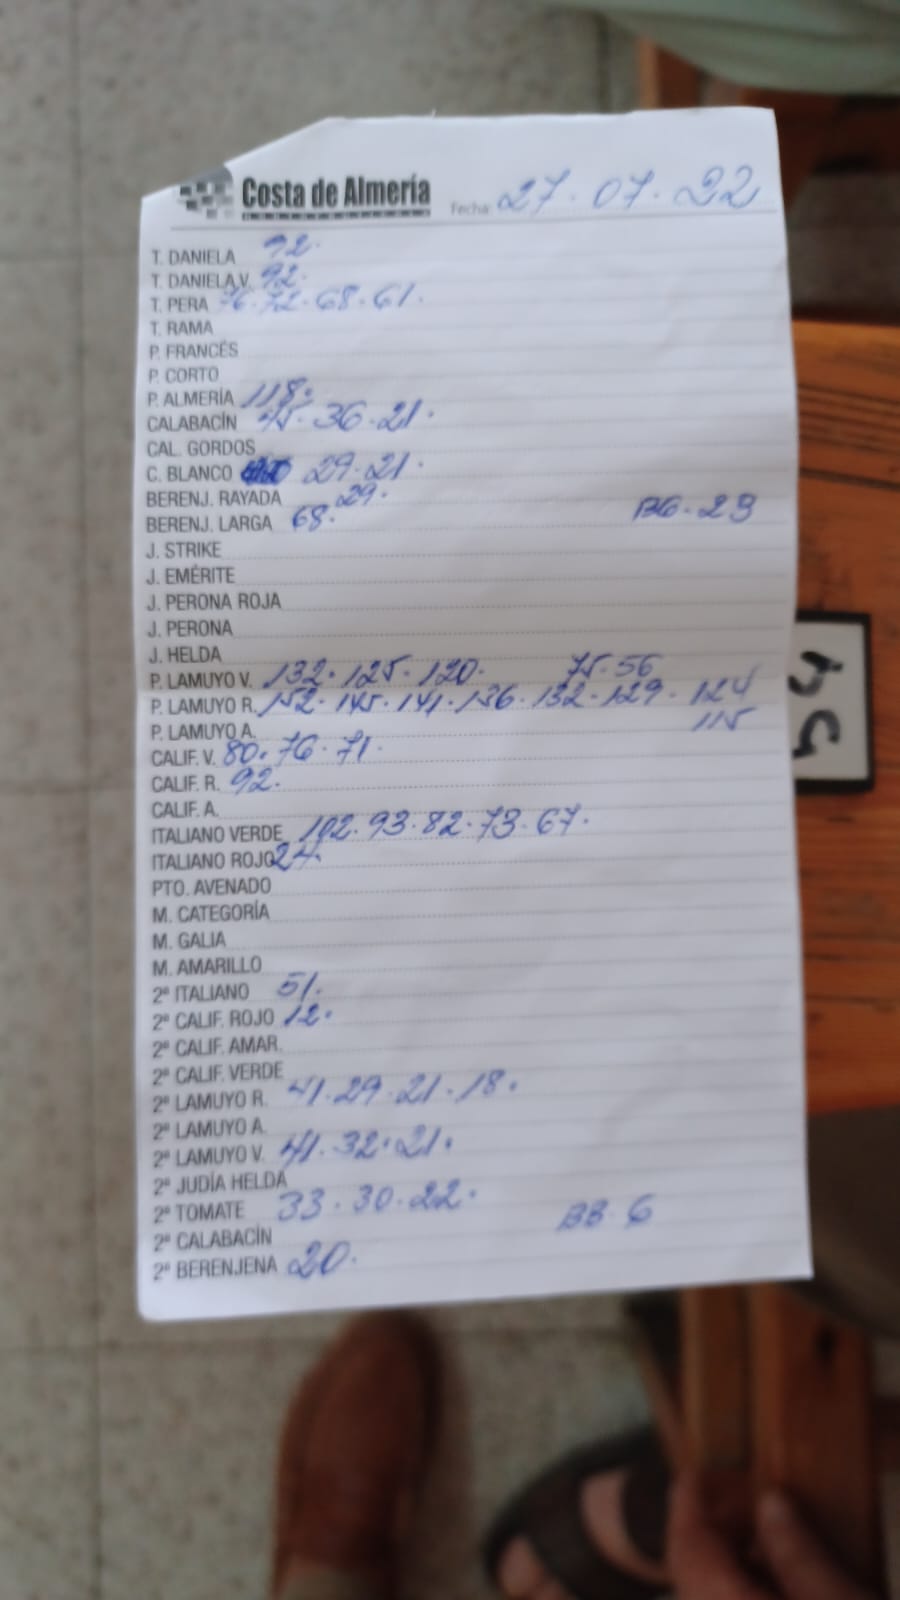 Costa de Almería
Fecha: 27.07.22
T. DANIELA 92.
T. DANELA V. 92.
T. PERA 76.72.68.61.
T. RAMA
P. FRANCÉS
P. CORTO
P. ALMERÍA 118.
CALABACÍN 45.36.21.
CAL. GORDOS
C. BLANCO 29.21.
BERENJ. RAYADA 29.
BERENJ. LARGA 68. BG.23
J. STRIKE
J. EMÉRITE
J. PERONA ROJA
J. PERONA
J. HELDA
P. LAMUYO V. 132.125.120. 75.56
P. LAMUYO R. 152.145.141.136.132.129.124
115
P. LAMUYO A.
CALIF. V. 80.76.71.
CALIF. R. 92.
CALIF. A.
ITALIANO VERDE 102.93.82.73.67.
ITALIANO ROJO 24.
PTO. AVENADO
M. CATEGORÍA
M. GALIA
M. AMARILLO
2ª ITALIANO 51.
2ª CALIF. ROJO 12.
2ª CALIF. AMAR.
2ª CALIF. VERDE
2ª LAMUYO R. 41.29.21.18.
2ª LAMUYO A.
2ª LAMUYO V. 41.32.21.
2ª JUDÍA HELDA
2ª TOMATE 33.30.22.
2ª CALABACÍN BB.6
2ª BERENJENA 20.